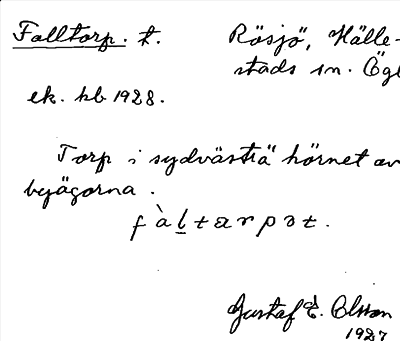 Falltorp. t. Rösjö, Hälle-
stads sn. Ögl
ek. kb 1928.
Torp i sydvästra hörnet av
byägorna.
f à l t a r p ɔ t.
Gustaf E. Olsson
1927